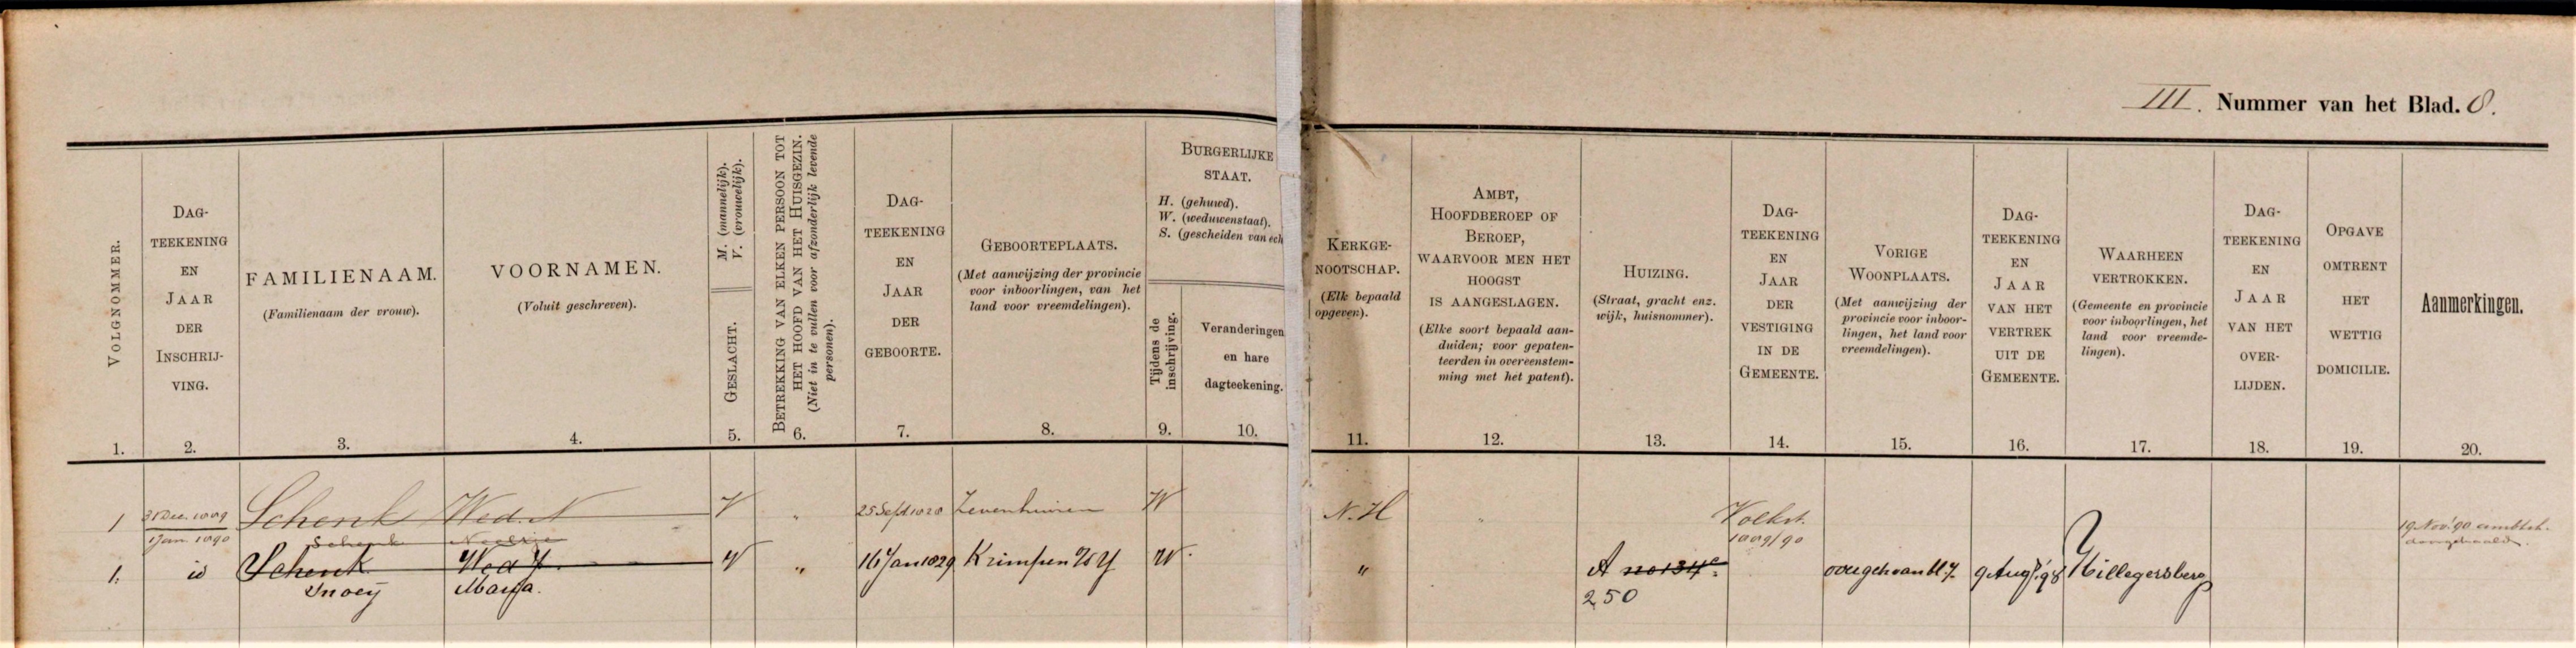 III. Nummer van het Blad. 8.
VOLGNOMMER.
DAG-
TEEKENING
EN
JAAR
DER
INSCHRIJ-
VING.
FAMILIENAAM.
(Familienaam der vrouw).
VOORNAMEN.
(Voluit geschreven).
M. (mannelijk).
V. (vrouwelijk).
GESLACHT.
BETREKKING VAN ELKEN PERSOON TOT
HET HOOFD VAN HET HUISGEZIN.
(Niet in te vullen voor afzonderlijk levende
personen).
DAG-
TEEKENING
EN
JAAR
DER
GEBOORTE.
GEBOORTEPLAATS.
(Met aanwijzing der provincie
voor inboorlingen, van het
land voor vreemdelingen).
BURGERLIJKE
STAAT.
H. (gehuwd).
W. (weduwenstaat).
S. (gescheiden van ech
Tijdens de
inschrijving.
Veranderingen
en hare
dagteekening.
KERKGE-
NOOTSCHAP.
(Elk bepaald
opgeven).
AMBT,
HOOFDBEROEP OF
BEROEP,
WAARVOOR MEN HET
HOOGST
IS AANGESLAGEN.
(Elke soort bepaald aan-
duiden; voor gepaten-
teerden in overeenstem-
ming met het patent).
HUIZING.
(Straat, gracht enz.
wijk, huisnommer).
DAG-
TEEKENING
EN
JAAR
DER
VESTIGING
IN DE
GEMEENTE.
VORIGE
WOONPLAATS.
(Met aanwijzing der
provincie voor inboor-
lingen, het land voor
vreemdelingen).
DAG-
TEEKENING
EN
JAAR
VAN HET
VERTREK
UIT DE
GEMEENTE.
WAARHEEN
VERTROKKEN.
(Gemeente en provincie
voor inboorlingen, het
land voor vreemde-
lingen).
DAG-
TEEKENING
EN
JAAR
VAN HET
OVER-
LIJDEN.
OPGAVE
OMTRENT
HET
WETTIG
DOMICILIE.
Aanmerkingen.
1. 2. 3. 4. 5. 6. 7. 8. 9. 10. 11. 12. 13. 14. 15. 16. 17. 18. 19. 20.
1 31 Dec. 1889 Schenk Wed. N V " 25 Sept 1828 Zevenhuizen W N.H " Volkst. 19 Nov. '90 ambtsh.
1 Jan 1890 Schenk Neeltje 1889/90 doorgehaald.
1. id Schenk Wed J V " 16 Jan 1829 Krimpen a/d Y W. " A no 134c. overgeh van bl 7. 9 Aug. '98 Hillegersberg
Snoeij Marja. 250